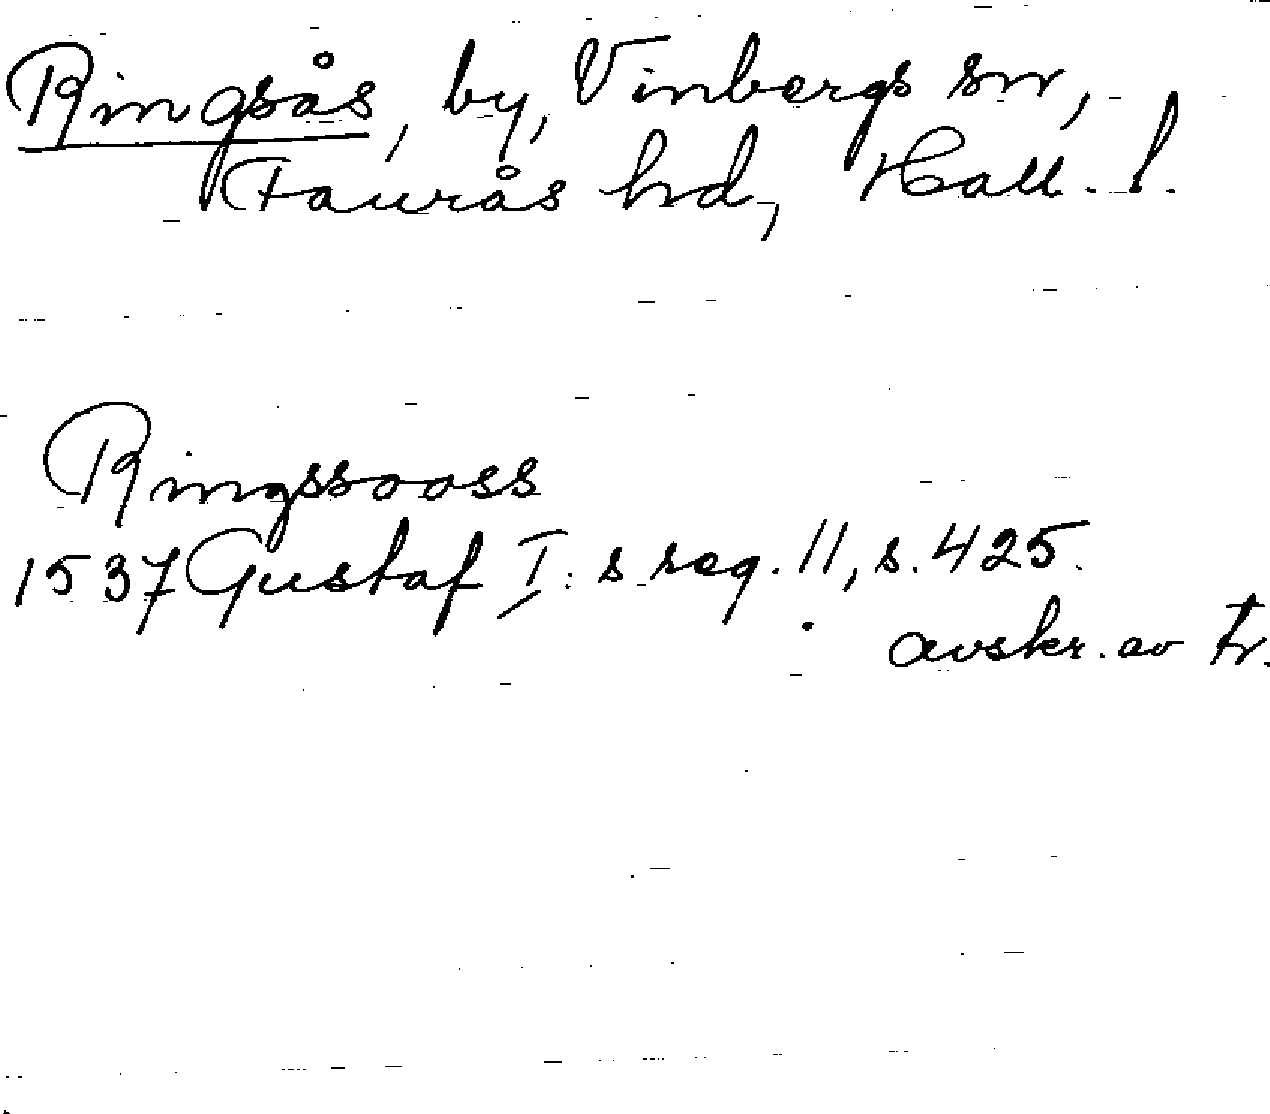 Ringsås, by, Vinbergs sn,
Faurås hd, Hall. l.
Ringssooss
1537 Gustaf I:s reg. 11, s. 425.
avskr. av tr.